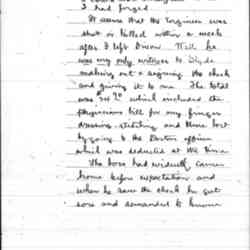 I had forged
It seems that the Engineer was
shot & killed within a week
after I left Union. Well he
was my only witness to Clyde
making out & signing the check
and giving it to me. The total
was which included the
physicians bill for my finger
dressing, stitching and time lost
by going to the Doctors office
which was deducted at the time
The boss had evidently came
home before expectation and
when he saw the check he got
sore and demanded to know